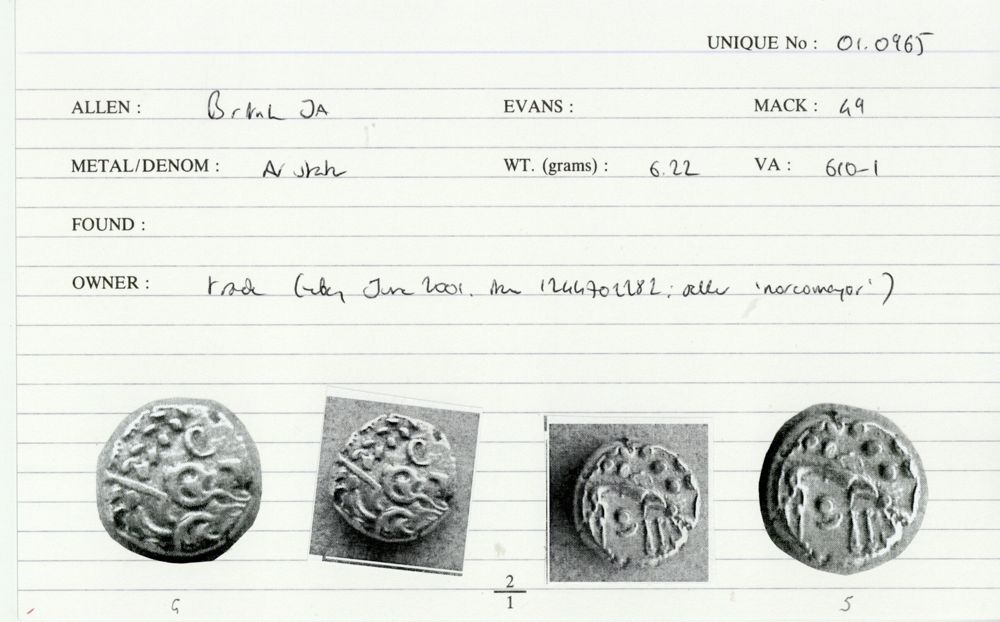 UNIQUE No : 01.0965
ALLEN : British JA EVANS : MACK : 49
METAL/DENOM : AV WT. (grams) : 6.22 VA : 610-1
FOUND :
OWNER : trade (eBay June 2001. 1244702282; seller 'norcomayor')
2
1
G 5